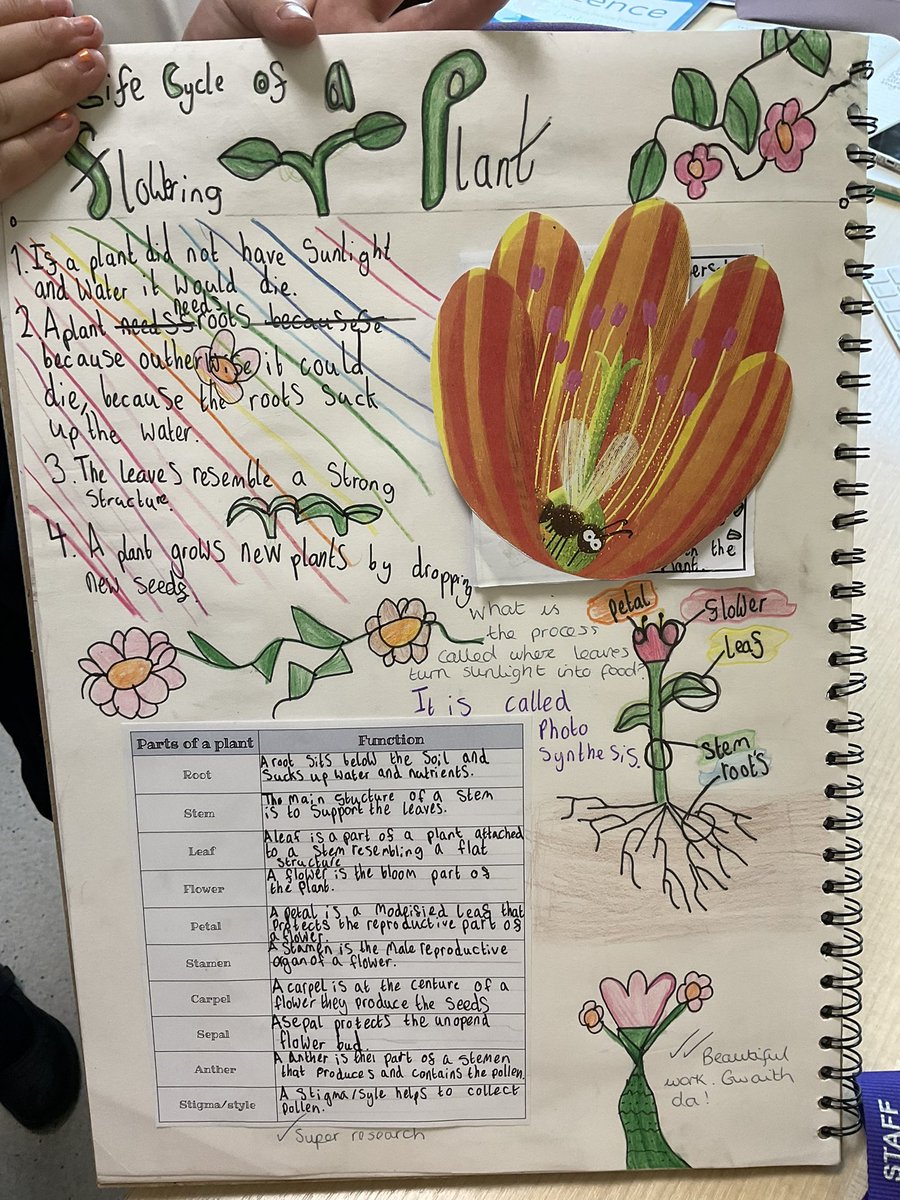 ence
Life Cycle Of a
Flowering Plant
1. If a plant did not have Sunlight
and water it would die.
2. A plant needs roots
becauseoutherwise it could
die, because the roots suck
up the water.
3. The leaves resemble a Strong
Structure.
4. A plant grows new plants by dropping
new seeds.
the
plant.
What is
the process
called where leaves
turn sunlight into food?
It is called
Photo
Synthesis.
Petal
flower
leaf
Stem
roots
Parts of a plant Function
Root A root sits below the Soil and
Sucks up water and nutrients.
Stem The main Stucture of a Stem
is to support the leaves.
Leaf A leaf is a part of a plant attached
to a stem resembling a flat
structure
Flower A flower is the bloom part of
the plant.
Petal A petal is a Modfified Leaf that
Protects the reproductive part of
a flower.
Stamen A Stamen is the Male reproductive
organ of a flower.
Carpel A carpel is at the centure of a
flower they produce the Seeds
Sepal A sepal protects the unopend
flower bud.
Anther A Anther is ther part of a Stemen
that Produces and contains the pollen.
Stigma/style A Stigma/Syle helps to collect
pollen.
Super research
Beautiful
work. Gwaith
da!
STAFF